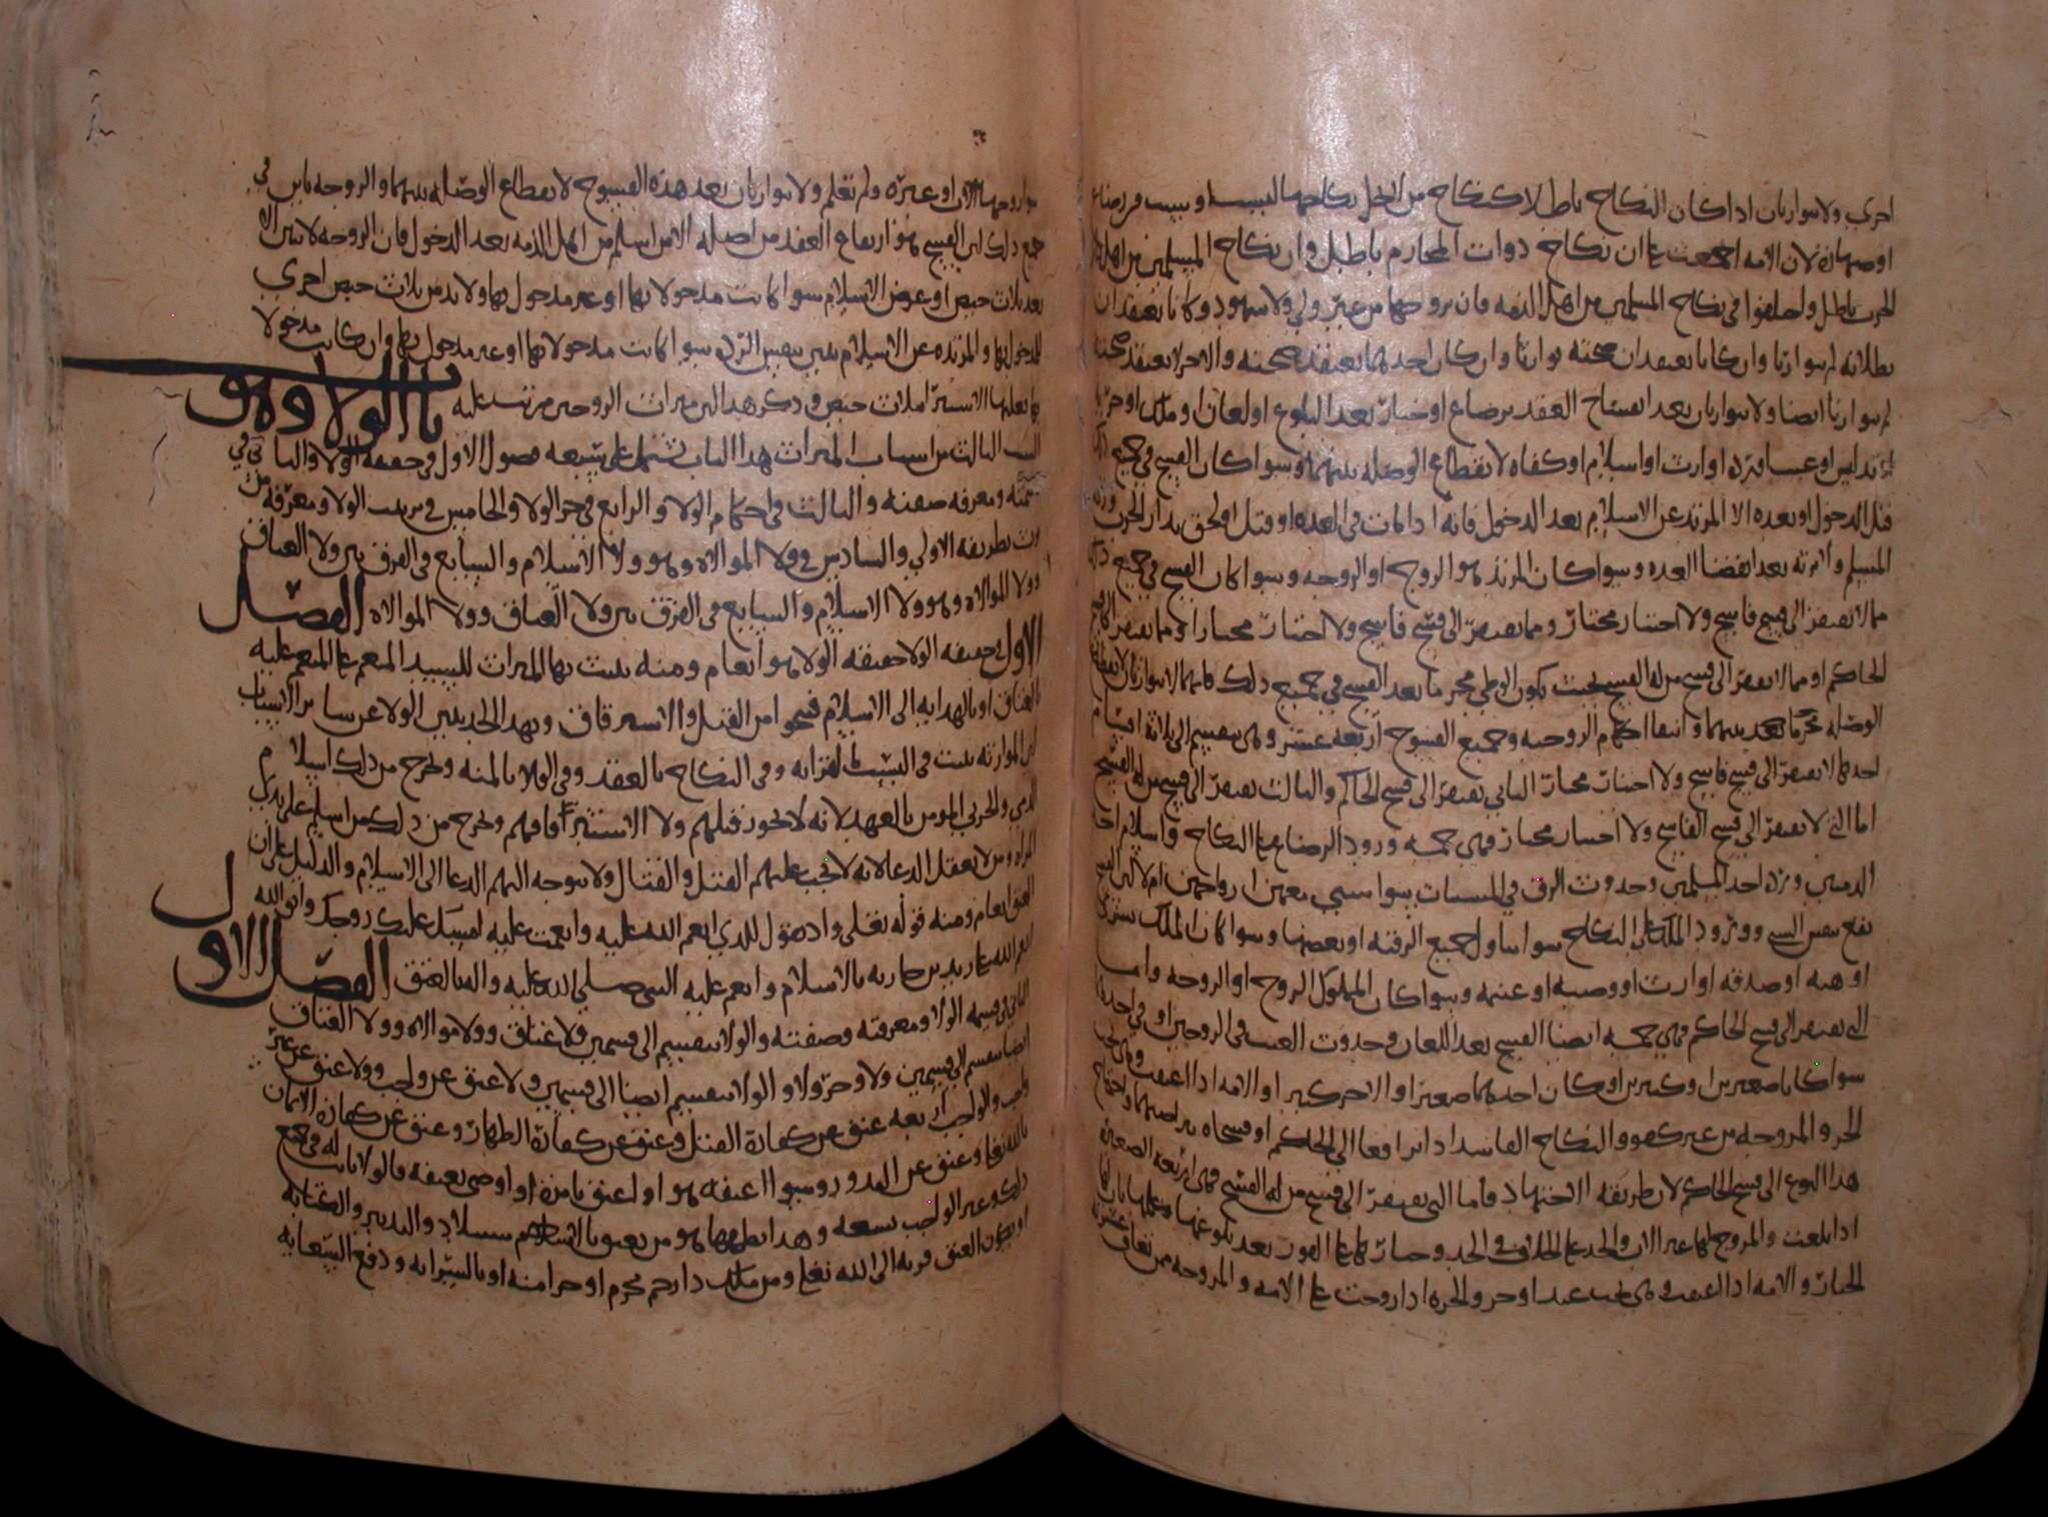 اخرى ولا يتوارثان اذا كان النكاح باطلا كنكاح من لا يحل نكاحها لنسب او سبب من رضاع
او صهارة لان الامه اجمعت على ان نكاح ذوات المحارم باطل وان نكاح المسلمين من اهل
الحرب باطل واختلفوا في نكاح المسلمين من اهل الذمه فان تزوجها من غير ولي ولا شهود وكانا يعتقدان
بطلانه لم يتوارثا وان كانا يعتقدان صحته توارثا وان كان احدهما يعتقد صحته والاخر لا يعتقد صحته
لم يتوارثا ايضا ولا يتوارثان بعد انفساخ العقد برضاع او خيار بعد البلوغ او لعان او ملك او حريه
او تدليس او عيب او رده او ارث او اسلام او كفاه لانقطاع الوصله بينهما وسوا كان الفسخ في جميع
قبل الدخول او بعده الا المرتد عن الاسلام بعد الدخول فانه اذا مات في العده او قتل او لحق بدار الحرب ورثه
المسلم ولا يرثه بعد انقضا العده وسوا كان المرتد هو الزوج او الزوجه وسوا كان الفسخ في جميع ذلك
مما لا يفتقر الى فسخ فاسخ ولا اختيار مختار ومما يفتقر الى فسخ فاسخ ولا اختيار مختار او مما يفتقر الى فسخ
الحاكم او مما لا يفتقر الى فسخ من له الفسخ بحيث يكون الوطي محرما بعد الفسخ في جميع ذلك فانهما لا يتوارثان لانقطاع
الوصله بينهما وانتفا احكام الزوجيه وجميع الفسوخ اربعه عشر وهي تنقسم الى ثلاثة اقسام
احدها لا يفتقر الى فسخ فاسخ ولا اختيار مختار الثاني يفتقر الى فسخ الحاكم والثالث يفتقر الى فسخ من له الفسخ
اما التي لا تفتقر الى فسخ الفاسخ ولا اختيار مختار فهي خمسه ورود الرضاع على النكاح واسلام احد
الذميين ورده احد المسلمين وحدوث الرق في المسبيات سوا سبي معهن ازواجهن ام لا لان
يقع بنفس السبي وورود الملك على النكاح سوا تناول جميع الرقبه او بعضها وسوا كان الملك بشرى
او هبه او صدقه او ارث او وصيه او غنيمه وسوا كان المملوك الزوج او الزوجه واما
التي تفتقر الى فسخ الحاكم فهي خمسه ايضا الفسخ بعد اللعان وحدوث العيب في الزوجين او في احدهما
سوا كانا صغيرين او كبيرين او كان احدهما صغيرا والاخر كبيرا والامه اذا اعتقت وهي تحت
الحر والمزوجه من غير كفو والنكاح الفاسد اذا ترافعا الى الحاكم او فسخاه بتراضيهما ولاحتياج
هذا النوع الى فسخ الحاكم لان طريقه الاجتهاد فاما التي تفتقر الى فسخ من له الفسخ فهي اربعه الصغيره
اذا بلغت والمزوج لها غير الاب والجد على الخلاف في الجد وخيارها على الفور بعد بلوغها وعلمها بان لها
الخيار والامه اذا اعتقت وهي تحت عبد او حر والحره اذا زوجت على الامه والمزوجه ممن تعاف عشرته
زوجها الاب او غيره ولم تعلم ولا يتوارثان بعد هذه الفسوخ لانقطاع الوصله بينهما والزوجه باين في
جميع ذلك لان الفسخ هو ارتفاع العقد من اصله الا من اسلم من اهل الذمه بعد الدخول فان الزوجه لا تبين الا
بعد ثلاث حيض او عرض الاسلام سوا كانت مدخولا بها او غير مدخول بها ولا بد من ثلاث حيض اخرى
للمدخول بها والمرتده عن الاسلام تبين بنفس الرده سوا كانت مدخولا بها او غير مدخول بها وان كانت مدخولا
بها فعليها الاستبرا بثلاث حيض وذكر هذا لان ميراث الزوجين مرتب عليه باب الولا وهو
السبب الثالث من اسباب الميراث هذا الباب يشتمل على سبعه فصول الاول في حقيقه الولا والثاني في
قسمته ومعرفه صفته والثالث في احكام الولا والرابع في جر الولا والخامس في ترتيب الولا ومعرفه من
يرث بطريقه الاولي والسادس في ولا الموالاه وهو ولا الاسلام والسابع في الفرق بين ولا العتاق
وولا الموالاه وهو ولا الاسلام والسابع في الفرق بين ولا العتاق وولا الموالاه الفصل
الاول في حقيقه الولا حقيقه الولا هو انعام ومنه يثبت بها الميراث للسيد المنعم على المنعم عليه
بالعتاق او بالهدايه الى الاسلام فينجوا من القتل والاسترقاق وبهذا الحد يتبين الولا عن ساير الاسباب
لان الموارثه تثبت في النسب بالقرابه وفي النكاح بالعقد وفي الولا بالمنه وخرج من ذلك اسلام
الذمي والحربي المومن بالعهد لانه لا يجوز قتلهم ولا استرقاقهم وخرج من ذلك من اسلم على يدي
المراه ومن لا يعقل الدعا لانه لا يجب عليهم القتل والقتال ولا يتوجه اليهم الدعا الى الاسلام والدليل على ان
العتق انعام ومنه قوله تعالى واذ تقول للذي انعم الله عليه وانعمت عليه امسك عليك زوجك واتق الله
انعم الله على زيد بن حارثه بالاسلام وانعم عليه النبي صلى الله عليه واله بالعتق الفصل الاول
الثاني في قسمه الولا ومعرفته وصفته والولا ينقسم الى قسمين ولا عتاق وولا موالاه وولا العتاق
ايضا ينقسم الى قسمين ولا وجر ولا والولا ينقسم ايضا الى قسمين ولا عتق عن واجب وولا عتق عن غير
واجب والواجب اربعه عتق عن كفارة القتل وعتق عن كفارة الظهار وعتق عن كفارة الايمان
بالله تعالى وعتق عن المنذور وسوا اعتقه هو او اعتق بامره او اوصى بعتقه فالولا ثابت له في جميع
ذلك وغير الواجب تسعه وهذا نظمها هو من يعتق بالاستيلاد والتدبير والكتابه
او يكون العتق قربه الى الله تعالى ومن ملك ذا رحم محرم او جزا منه او بالسرايه ودفع السعايه